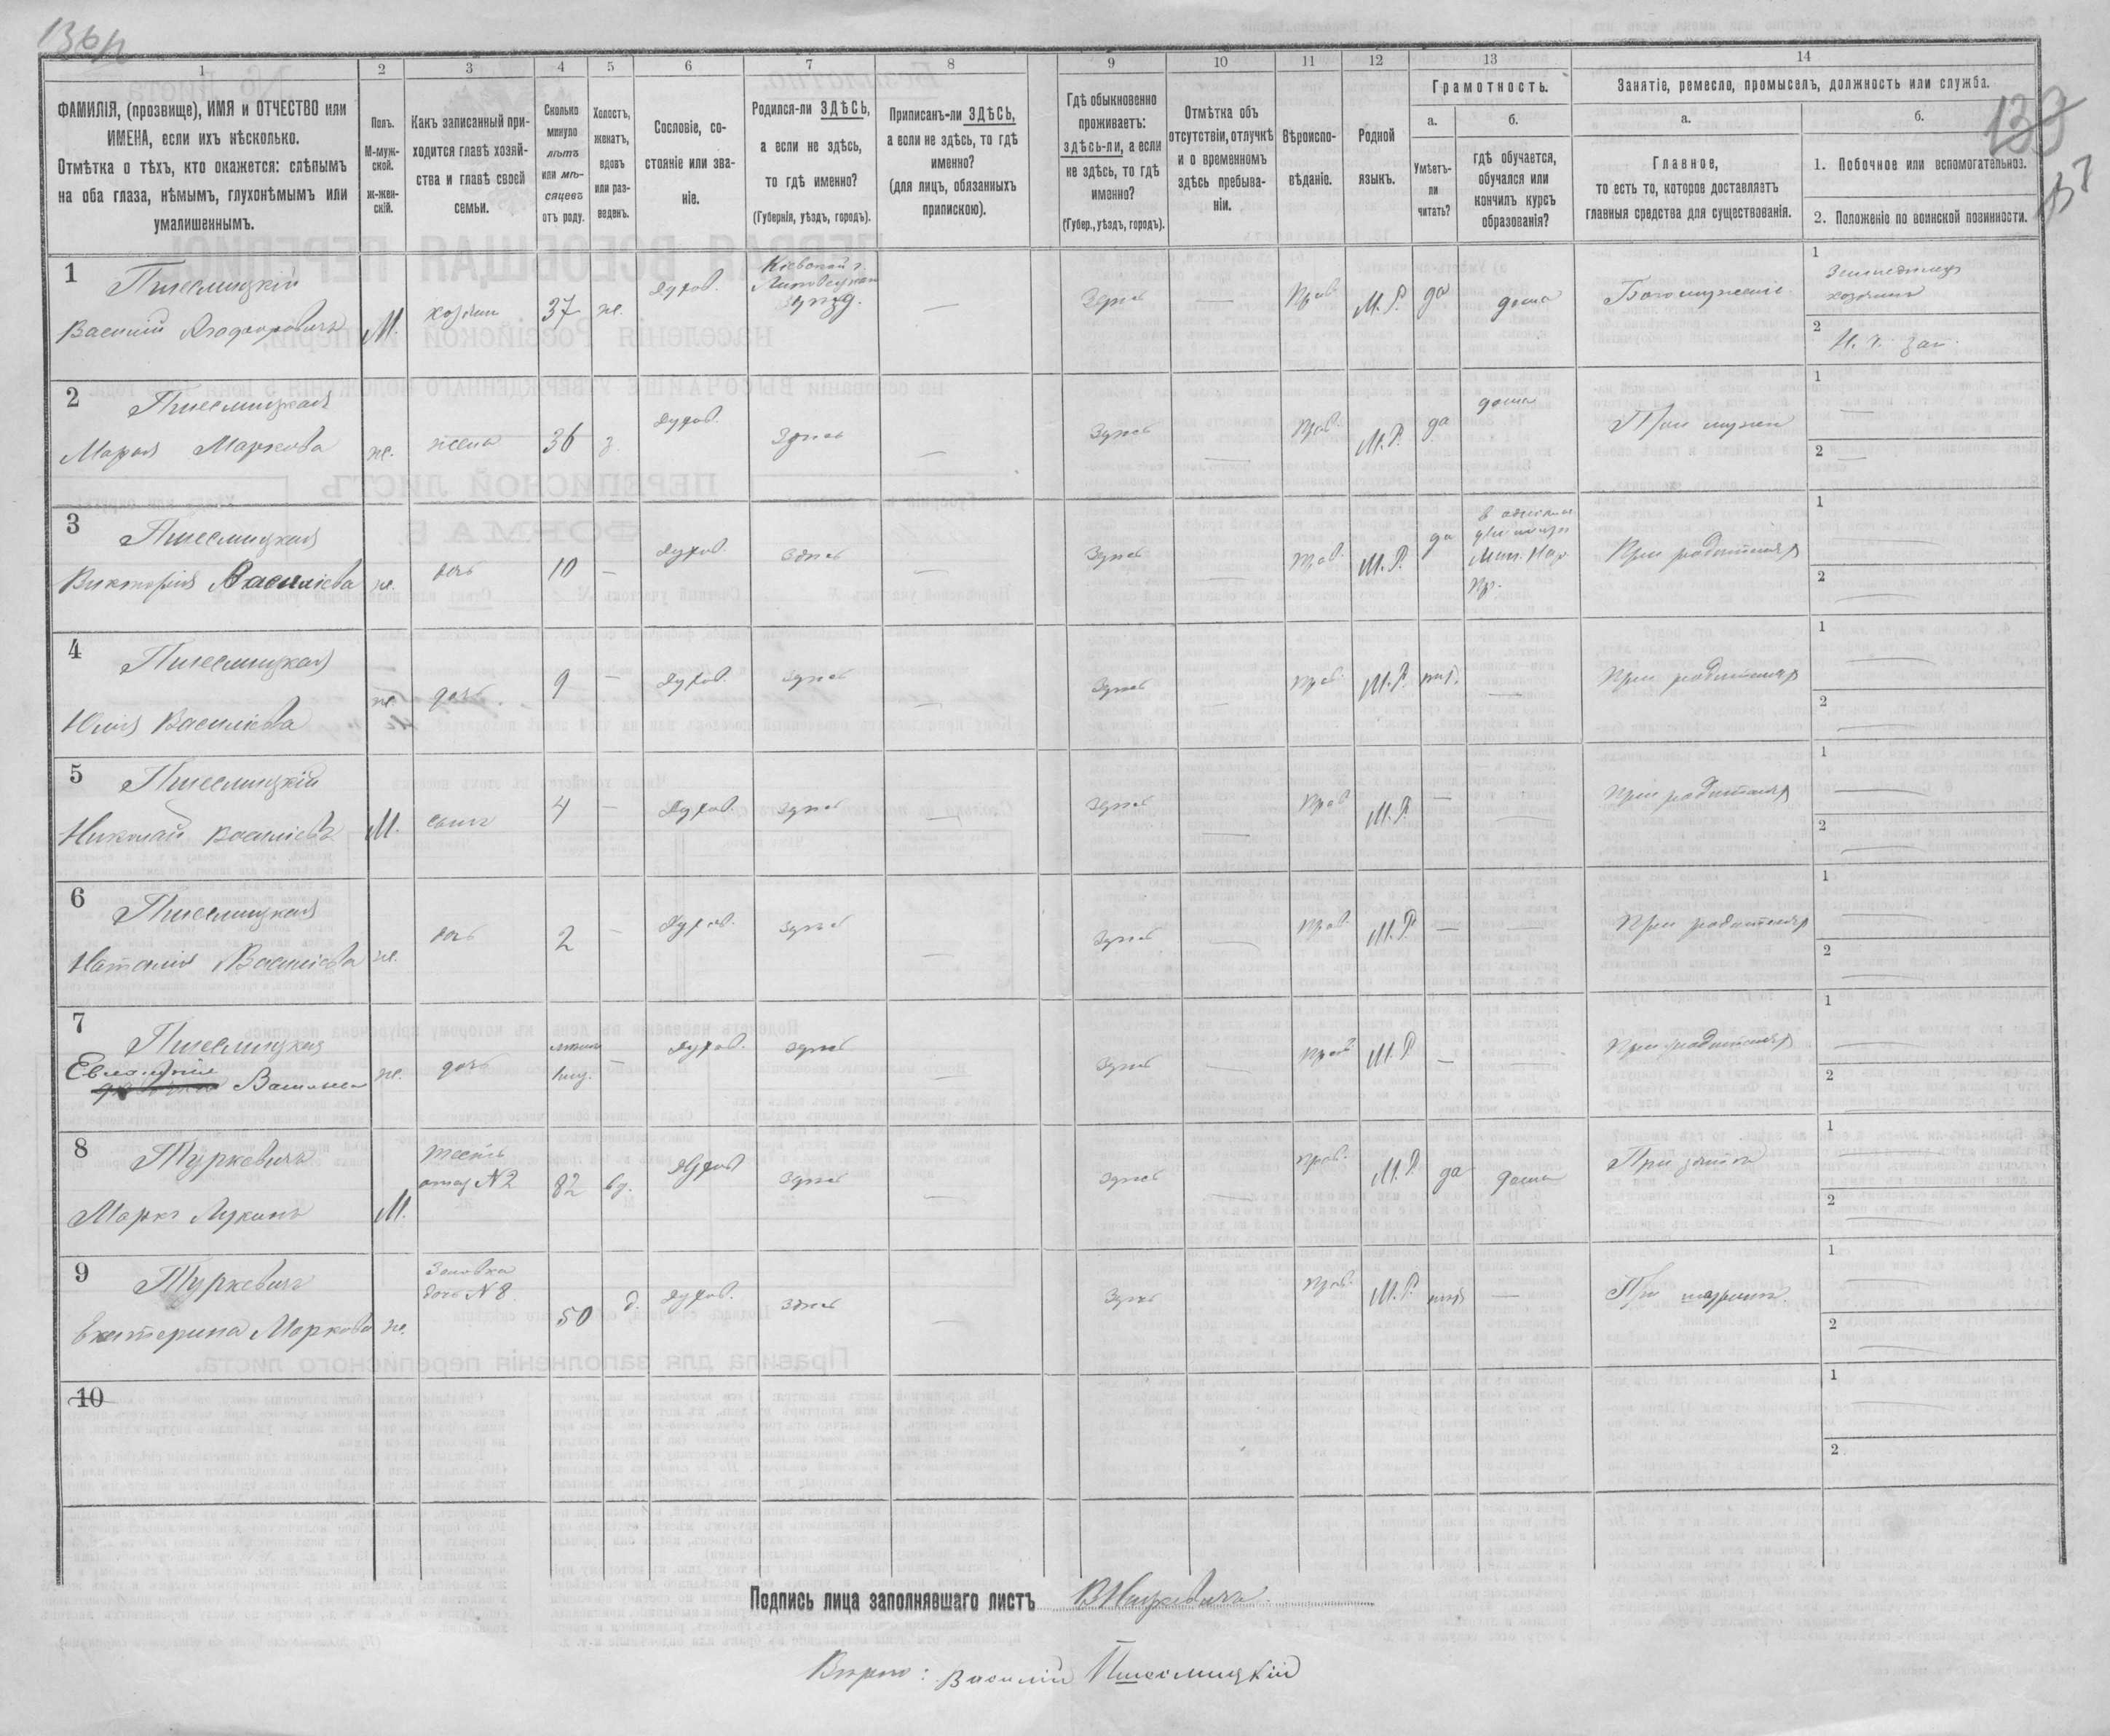 136п
139
1
2
3
4
5
6
7
8
9
10
11
12
13
14
ФАМИЛІЯ, (прозвище), ИМЯ и ОТЧЕСТВО или
ИМЕНА, если ихъ нѣсколько.
Отмѣтка о тѣхъ, кто окажется: слѣпымъ
на оба глаза, нѣмымъ, глухонѣмымъ или
умалишеннымъ.
Полъ.
М-муж-
ской.
ж-жен-
скій.
Какъ записанный при-
ходится главѣ хозяй-
ства и главѣ своей
семьи.
Сколько
минуло
лѣтъ
или мѣ-
сяцевъ
отъ роду.
Холостъ,
женатъ,
вдовъ
или раз-
веденъ.
Сословіе, со-
стояніе или зва-
ніе.
Родился-ли ЗДѢСЬ,
а если не здѣсь,
то гдѣ именно?
(Губернія, уѣздъ, городъ).
Приписанъ-ли ЗДѢСЬ,
а если не здѣсь, то гдѣ
именно?
(для лицъ, обязанныхъ
припискою).
Гдѣ обыкновенно
проживаетъ:
здѣсь-ли, а если
не здѣсь, то гдѣ
именно?
(Губер., уѣздъ, городъ).
Отмѣтка объ
отсутствіи, отлучкѣ
и о временномъ
здѣсь пребыва-
ніи.
Вѣроиспо-
вѣданіе.
Родной
языкъ.
Грамотность.
а.
Умѣетъ-
ли
читать?
б.
гдѣ обучается,
обучался или
кончилъ курсъ
образованія?
Занятіе, ремесло, промыселъ, должность или служба.
а.
Главное,
то есть то, которое доставляетъ
главныя средства для существованія.
б.
1. Побочное или вспомогательноз.
2. Положеніе по воинской повинности.
1
Василій
М.
хозяин
37
ж.
духов.
Кіевской г.
Здѣсь
Прав.
М. Р.
да
дома
Богослуженіе
1
хозяин
2
2
Марія Маркова
ж.
жена
36
з.
духов.
Здѣсь
Здѣсь
Прав.
М. Р.
да
дома
При мужѣ
1
2
3
Викторія Василіева
ж.
дочь
10
духов.
Здѣсь
Здѣсь
Прав.
М. Р.
да
Мин. Нар.
Пр.
При родителяхъ
1
2
4
Юлія Василіева
ж.
дочь
9
духов.
здѣсь
Здѣсь
Прав.
М. Р.
нѣтъ
При родителяхъ
1
2
5
Николай Василіевъ
М.
сынъ
4
духов.
здѣсь
Здѣсь
Прав.
М. Р.
При родителяхъ
1
2
6
Наталія Василіева
ж.
дочь
2
духов.
здѣсь
Здѣсь
Прав.
М. Р.
При родителяхъ
1
2
7
ж.
дочь
духов.
здѣсь
Здѣсь
Прав.
М. Р.
При родителяхъ
1
2
8
Туркевичъ
Маркъ Лукинъ
М.
тесть
отец №2
82
вд.
духов.
Здѣсь
Здѣсь
Прав.
М. Р.
да
дома
При зятѣ
1
2
9
Туркевичъ
Екатерина Маркова
ж.
Золовка
дочь №8
50
д.
духов.
Здѣсь
Здѣсь
Прав.
М. Р.
нѣтъ
При
1
2
10
1
2
Подпись лица заполнявшаго листъ
Вѣрно: Василій